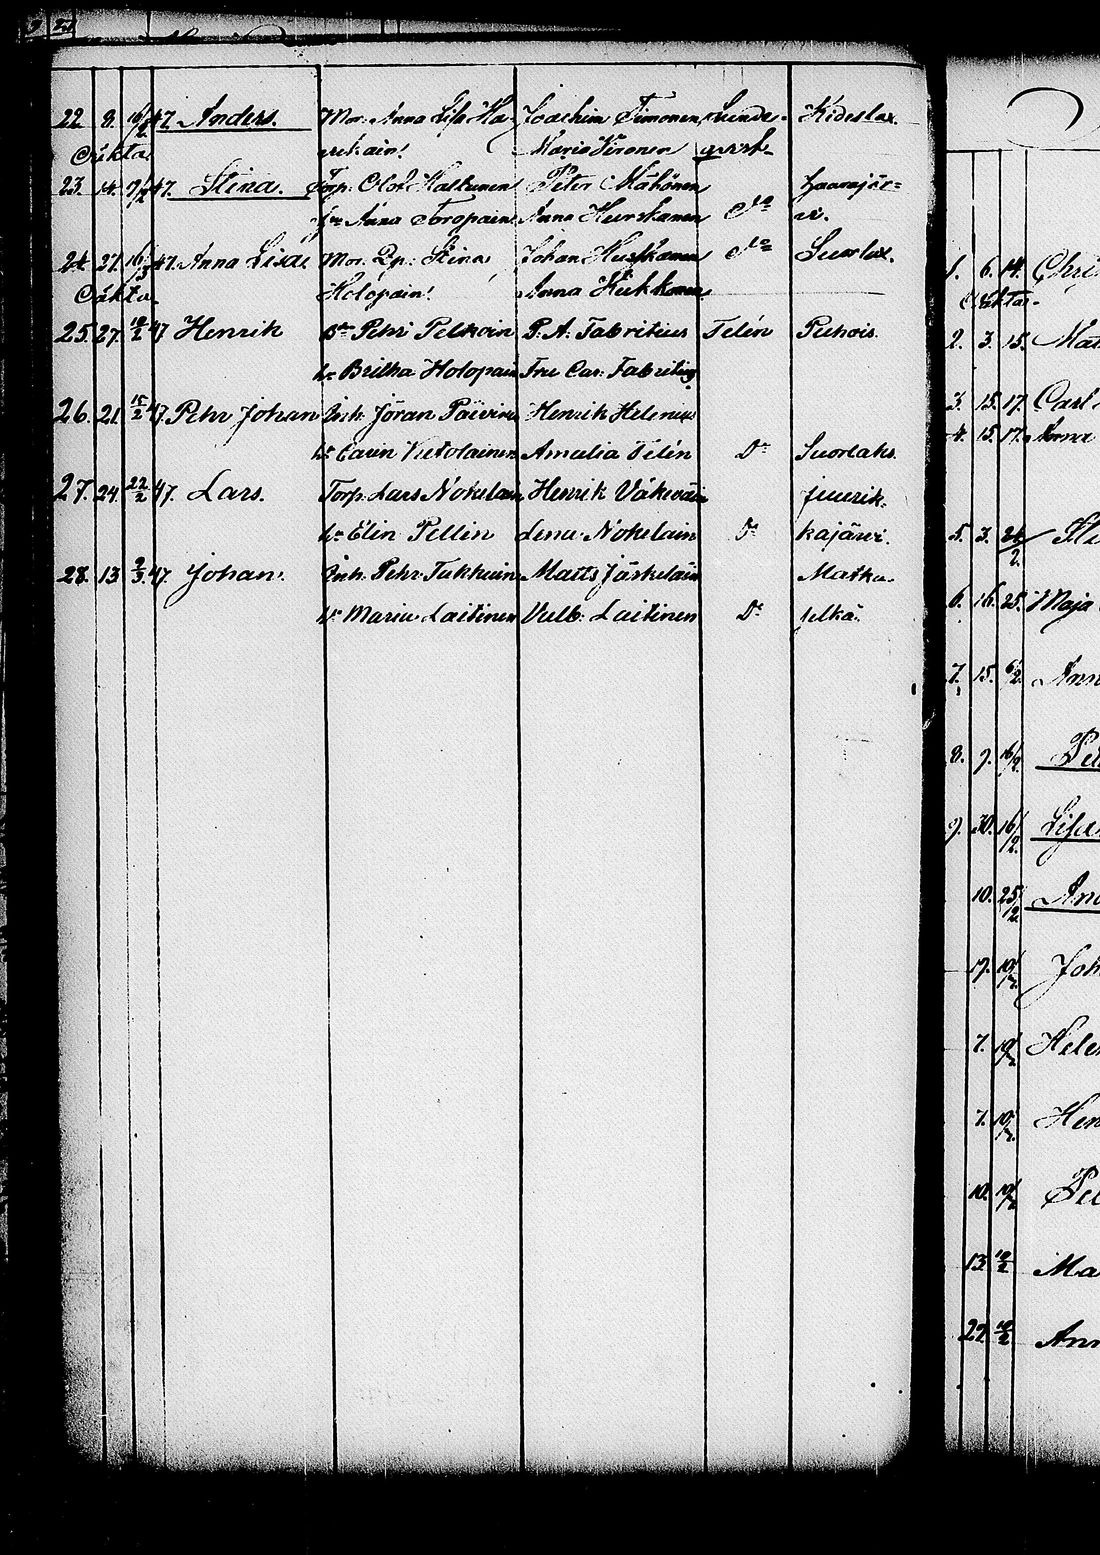 22 8. 16/2 47. Anders. Mor. Anna Lisa Ha- Joachim Timonen, Lunde- Kideslax.
Oäkta. Maria Hironen qvist
23. 14. 9/2 47. Stina. Torp. Olof Halkunen Peter Mähönen Haarajär-
Anna Toropain Anna Hurskanen Do vi.
24. 27. 47. Anna Lisa Mor. Pp: Stina Johan Hurskanen Do Suorlax.
Oäkta. Holopain! Anna Kukkonen
25. 27. 18/2 47 Henrik Pehr Pelkoin P. A. Fabritius Telén Puhois.
h: Britha Holopain Fru Car. Fabritius
26. 21. 15/2 47. Pehr Johan Inh. Jöran Päivine Henrik Helenius
h: Carin Vietolainen Amalia Telén Do Suorlaks.
27. 24. 22/2 47. Lars. Torp. Lars Nokelain Henrik Väkeväin Juurik-
h: Elin Pellin Lena Nokelain Do kajärvi.
28. 13 2/3. 47. Johan. Inh. Pehr Tukhuin Matts Jäskeläin Matka-
h: Maria Laitinen Valb. Laitinen Do selkä.
1. 6. 14.
Oäkta.
2. 3. 15.
3. 15. 17. Carl
4. 15. 17. Anna
5. 3.
6. 16. 25. Maja
7. 15. 6/2.
8. 9. 16/2.
9. 30. 16/2.
10. 25/2
17. 10/2.
7. 10/2.
7. 10/2.
10. 10/2
13. 10/2
22. 10/2